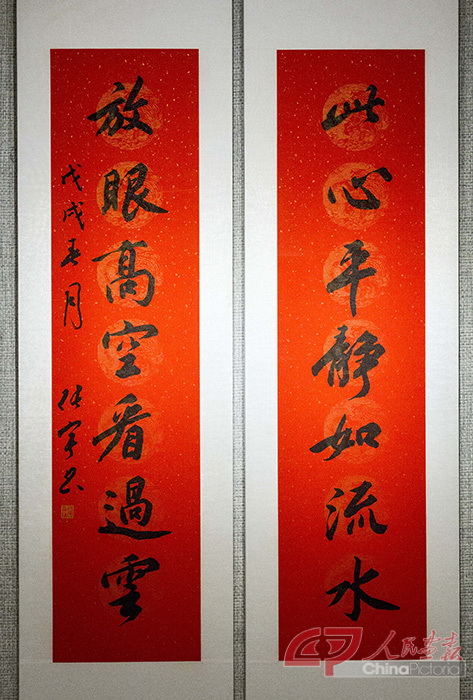 此心平静如流水
放眼高空看過雲
戊戌春月
张宇书
人民画报
ChinaPictorial